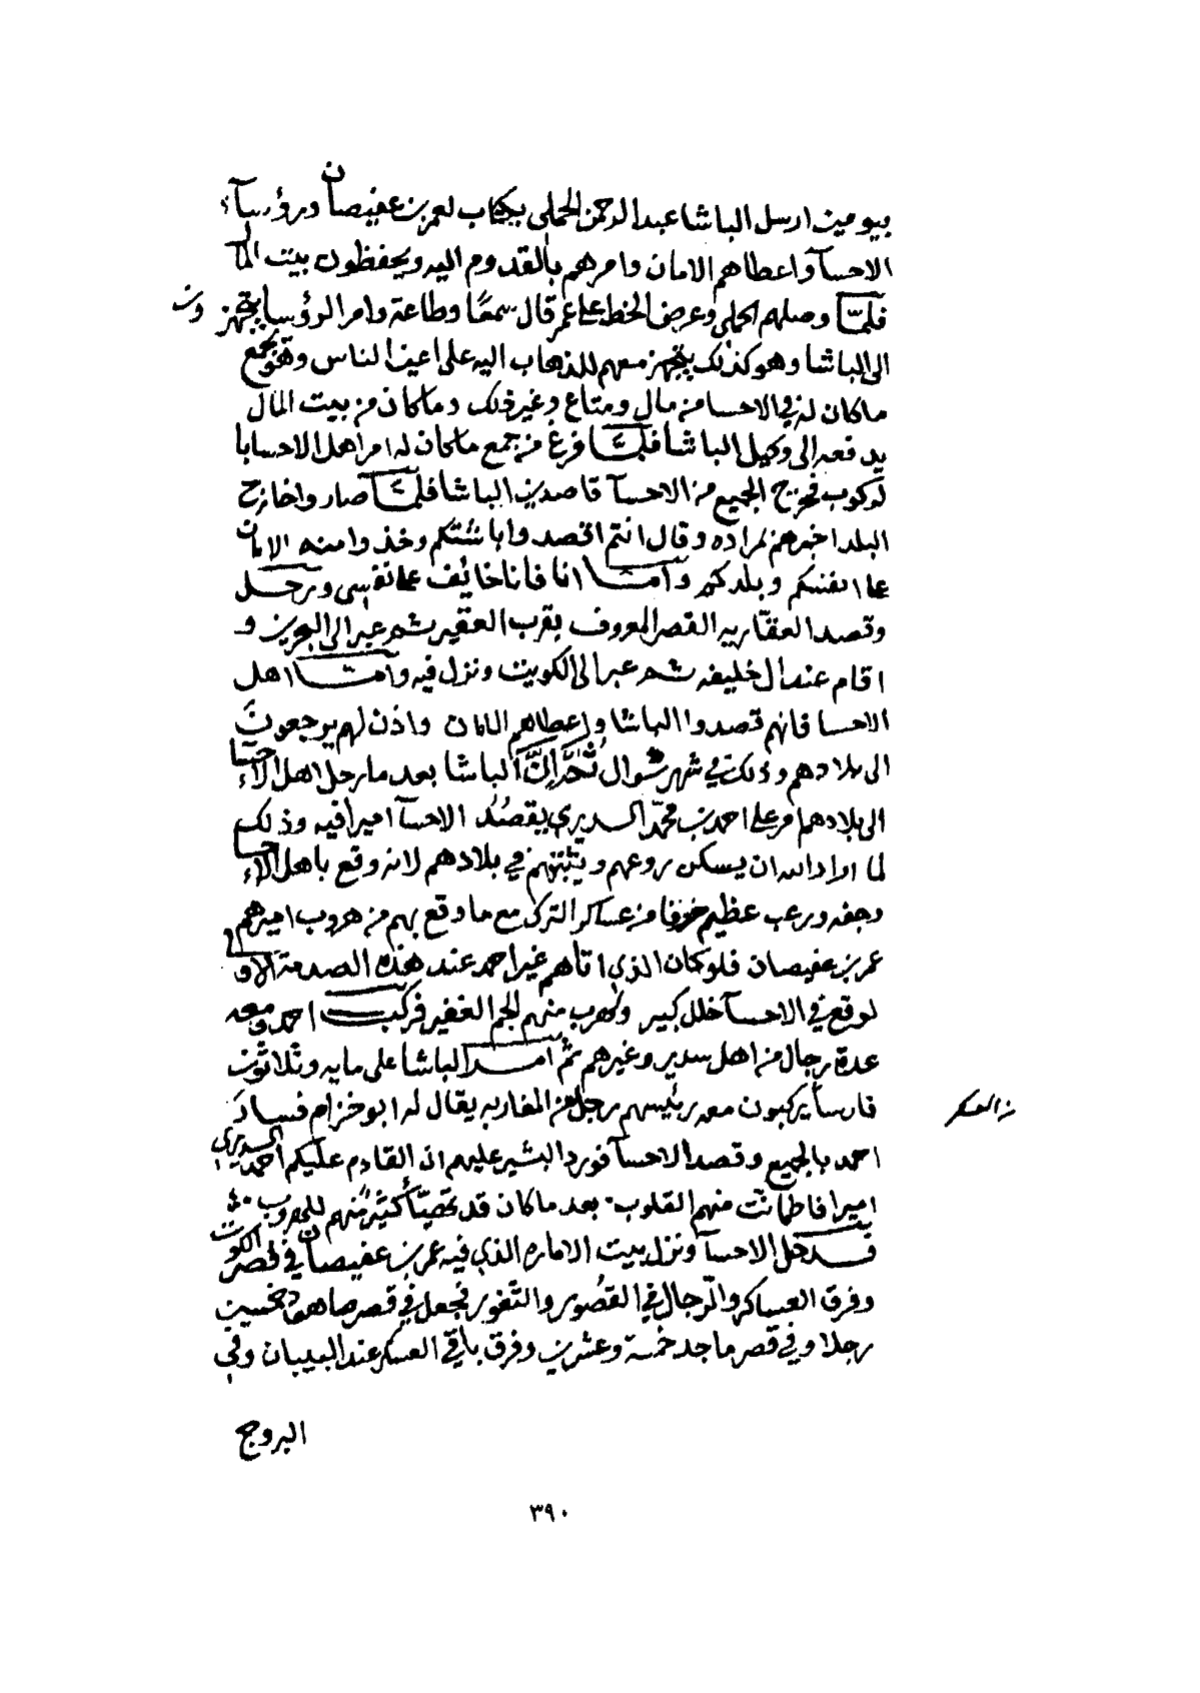 بيومين ارسل الباشا عبد الرحمن الحملي بكتاب لعمر بن عفيصان ورؤساء
الاحسآ واعطاهم الامان وامرهم بالقدوم اليه ويحفظون بيت المال
فلمّا وصلهم الحملي وعرض الخط على عمر قال سمعًا وطاعة وامر الرؤسا يتجهزون
الى الباشا وهو كذلك يتجهز معهم للذهاب اليه على اعين الناس وهو يجمع
ماكان له في الاحسا من مال ومتاع وغير ذلك وماكان من بيت المال
يدفعه الى وكيل الباشا فلمّا فرغ من جمع ماكان له امر اهل الاحسا با
لركوب فخرج الجميع من الاحسآ قاصدين الباشا فلمّا صاروا خارج
البلد اخبرهم لمراده وقال انتم اقصدوا باشتكم وخذوا منه الامان
على انفسكم وبلدكم وأمّا انا فانا خائف على نفسي ورحل
وقصد العقاريه القصر المعروف بقرب العقير ثم عبر الى البحرين و
اقام عند ال خليفه ثم عبر الى الكويت ونزل فيه وأمّا اهل
الاحسا فانهم قصدوا الباشا واعطاهم الامان واذن لهم يرجعون
الى بلادهم وذلك في شهر شوال ثُمَّ إنَّ الباشا بعد ما رحل اهل الاحسآ
الى بلادهم امر على احمد بن محمّد السديري يقصُد الاحسآ اميرا فيه وذلك
لما اراد الله ان يسكن روعهم ويثبتهم في بلادهم لانه وقع باهل الاحسا
رجفه ورعب عظيم خوفا من عساكر الترك مع ما وقع بهم من هروب اميرهم
عمر بن عفيصان فلو كان الذي اتاهم غير احمد عند هذه الصدمة الاولى
لوقع في الاحسآ خلل كبير ولهرب منهم الجم الغفير فركب احمد ومعه
عدة رجال من اهل سدير وغيرهم ثمّ امر الباشا على مايه وثلاثون
فارسا يركبون معه رئيسهم رجل من المغاربه يقال له ابو خزام فسارَ
من العسكر
احمد بالجميع وقصد الاحسآ فورد البشير عليهم ان القادم عليكم احمد السديري
اميرا فاطمأنّت منهم القلوب بعد ما كان قد تهيّأ كثيرٌ منهم للهروب
فدخل الاحسآ ونزل بيت الاماره الذي فيه عمر بن عفيصان في قصر الكوت
وفرق العساكر والرّجال في القصُور والثّغور فجعل في قصر صاهود خمسين
رجلا وفي قصر ماجد خمسة وعشرين وفرق باقي العسكر عند البيبان وفي
البروج
٣٩٠